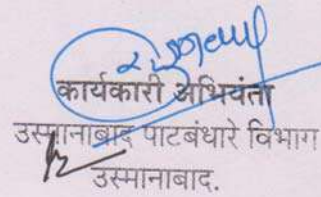 कार्यकारी अभियंता
उस्मानाबाद पाटबंधारे विभाग
उस्मानाबाद.